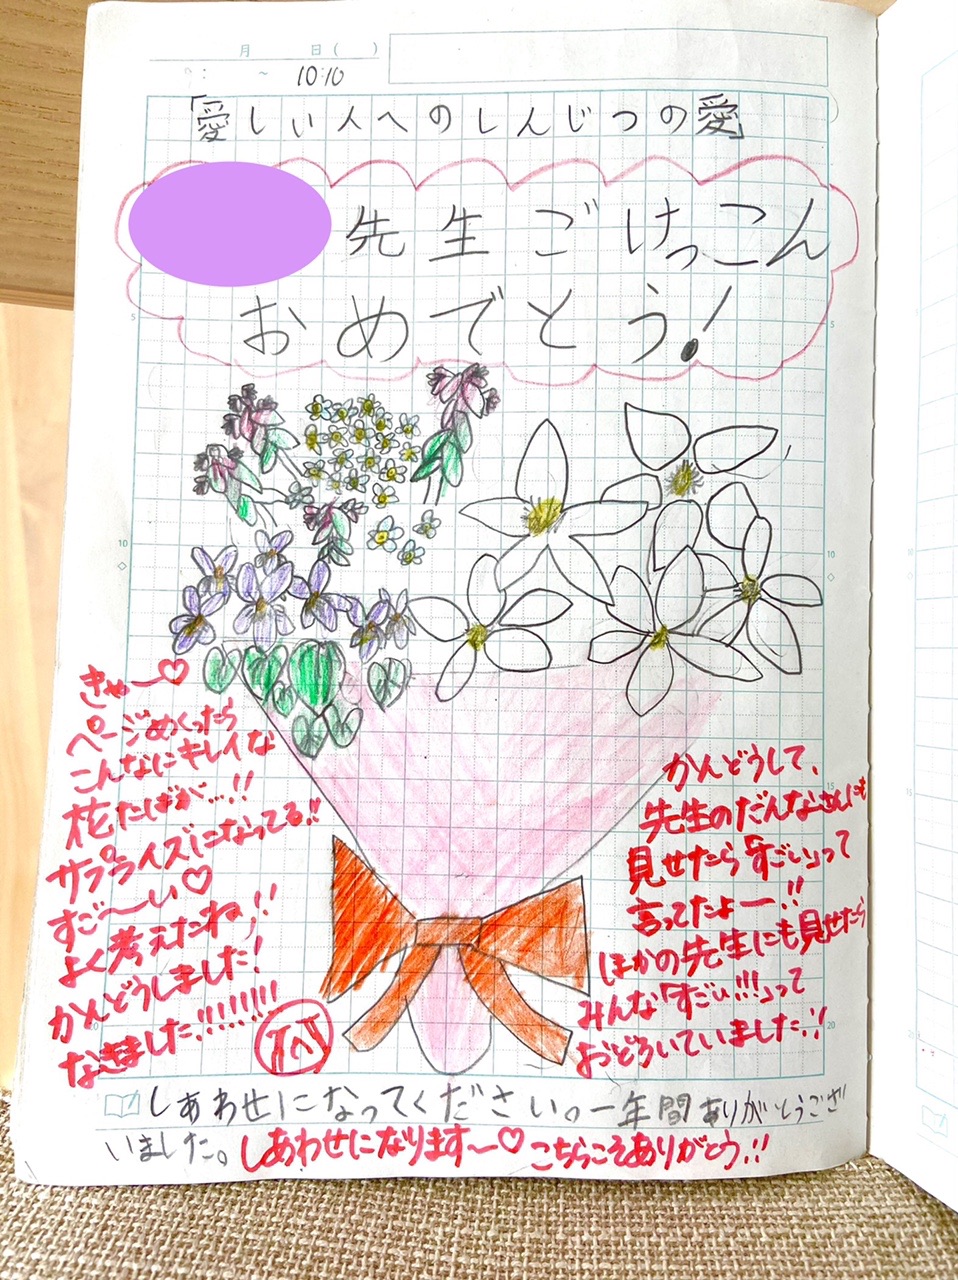 月 日( )
: ～ 10:10
「愛しい人へのしんじつの愛」
先生ごけっこん
おめでとう!
5
5
10
10
きゃ〜♡
ページめくったら
こんなにキレイな
花たばが…!!
サプライズになってる!!
すご〜い♡
よく考えたね!!
かんどうしました!
なきました!!!!!!!!
かんどうして、
15
先生のだんなさんにも
見せたら「すごい」って
言ってたよー!!
ほかの先生にも見せたら
みんな「すごい!!!」って
おどろいていました!!
20
しあわせになってください。一年間ありがとうござ
いました。しあわせになります〜♡こちらこそありがとう!!